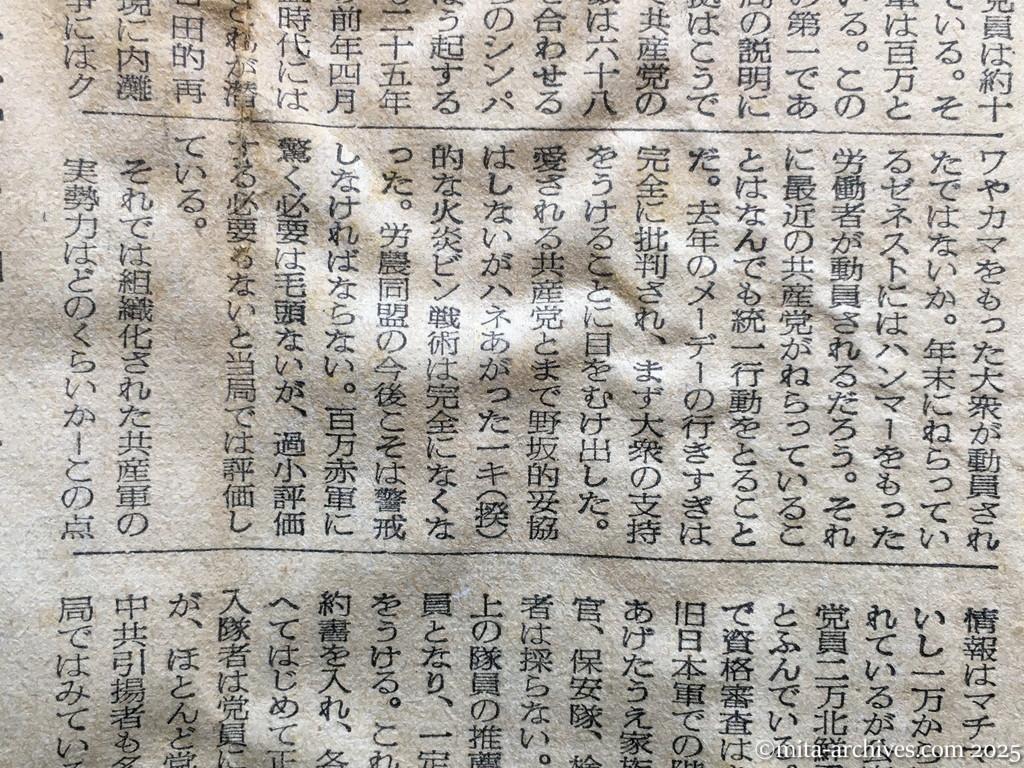 党員は約十
ている。そ
軍は百万と
いる。この
の第一であ
局の説明に
拠はこうで
て共産党の
数は六十八
を合わせる
らのシンパ
ほう起する
二十五年
り前年四月
時代には
これが潜
日田的再
現に内灘
事にはク
ワやカマをもった大衆が動員され
たではないか。年末にねらってい
るゼネストにはハンマーをもった
労働者が動員されるだろう。それ
に最近の共産党がねらっているこ
とはなんでも統一行動をとること
だ。去年のメーデーの行きすぎは
完全に批判され、まず大衆の支持
をうけることに目をむけ出した。
愛される共産党とまで野坂的妥協
はしないがハネあがった一キ（揆）
的な火炎ビン戦術は完全になくな
った。労農同盟の今後こそは警戒
しなければならない。百万赤軍に
驚く必要は毛頭ないが、過小評価
する必要もないと当局では評価し
ている。
それでは組織化された共産軍の
実勢力はどのくらいかーこの点
情報はマチ
いし一万から
れているが
党員二万北鮮
とふんでいる。
で資格審査は
旧日本軍での階
あげたうえ家族
官、保安隊、検
者は採らない。
上の隊員の推薦
員となり、一定
をうける。これ
約書を入れ、各
へてはじめて正
入隊者は党員に
が、ほとんど党
中共引揚者も多
局ではみてい
©mita-archives.com 2025